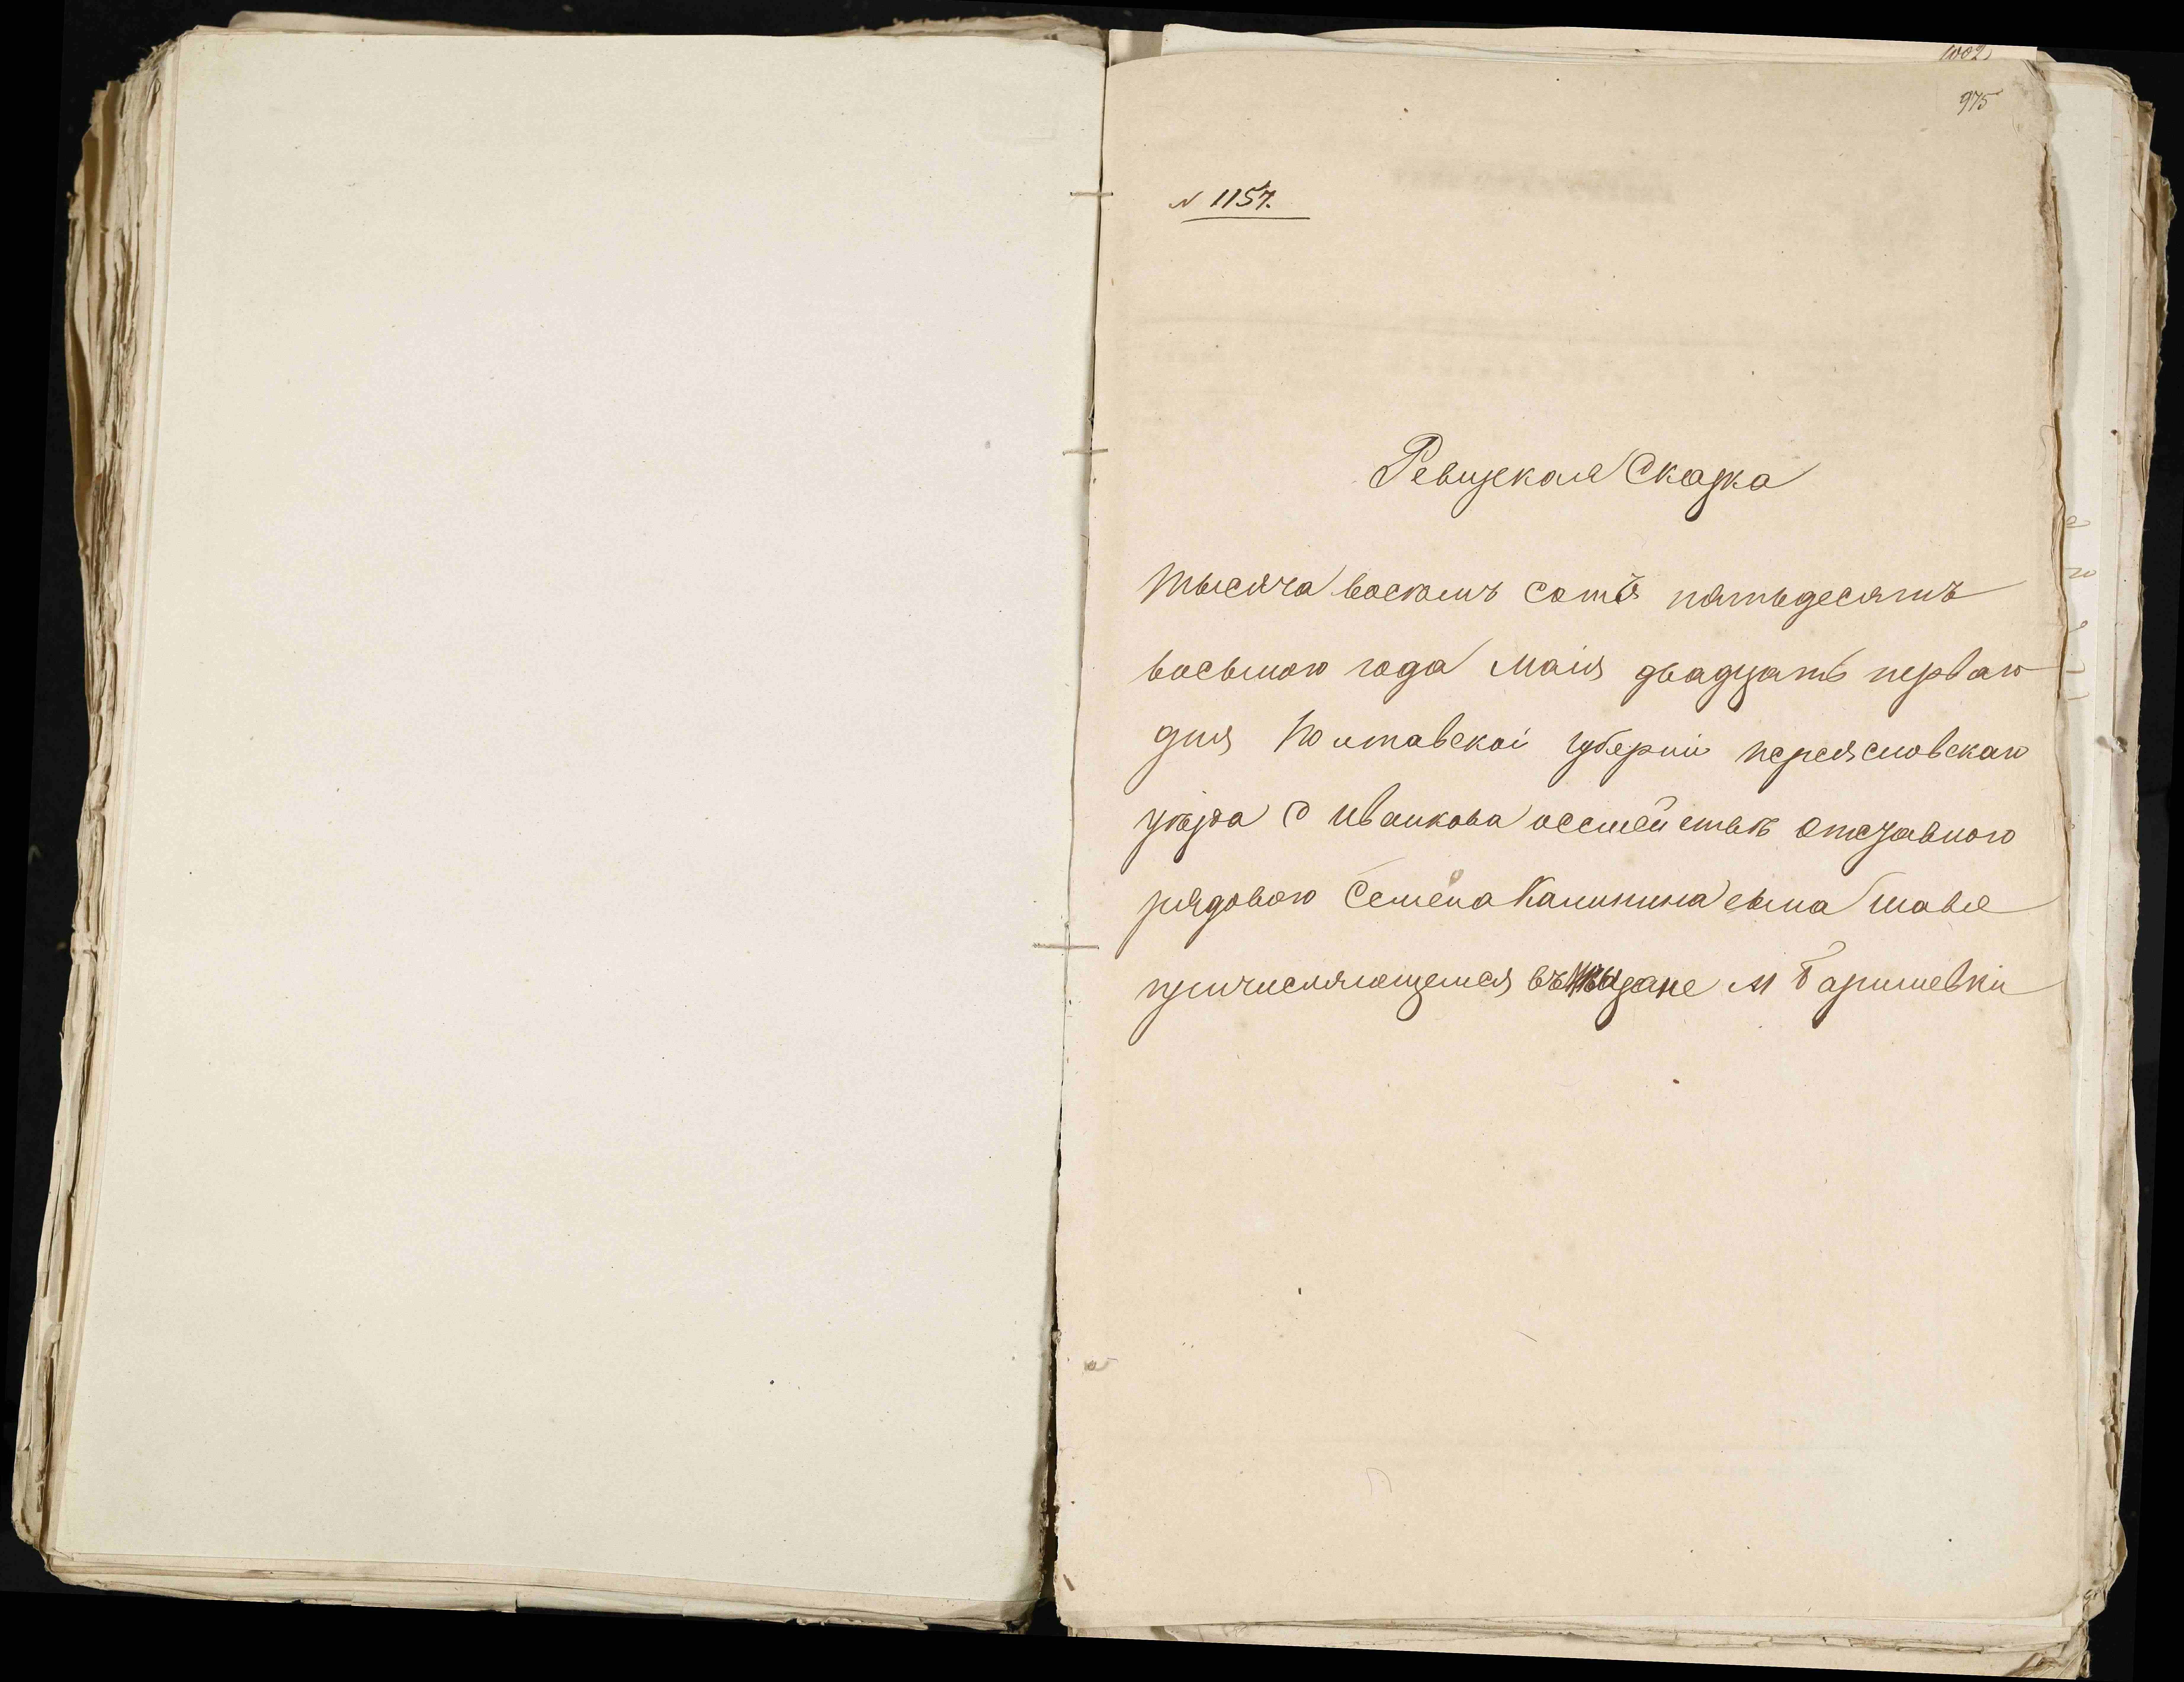 1002
975
N 1157.
Ревизская Сказка
тысяча восюмъ сотъ пятьдесятъ
восьмого года Маія двадцать перваго
дня Полтавской губерніи переясловскаго
уѣзда с Иванкова осемействѣ Отставного
рядового Семёна Калинина сына
причисляющемся въ М Баришевки